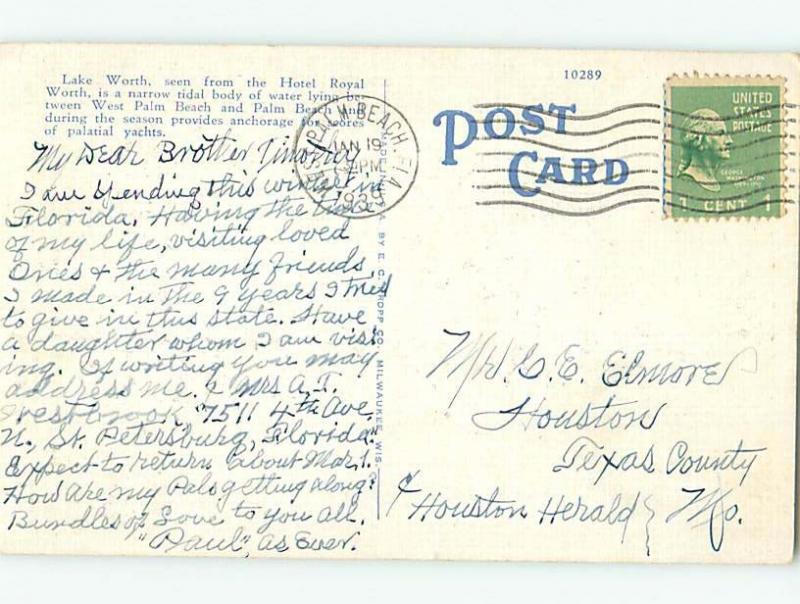 Lake Worth, seen from the Hotel Royal
Worth, is a narrow tidal body of water lying be-
tween West Palm Beach and Palm Beach and
during the season provides anchorage for scores
of palatial yachts.
10289
POST
CARD
WEST PALM BEACH FLA
JAN 19
PM
UNITED
STATES
POSTAGE
GEORGE
WASHINGTON
1 CENT 1
MADE BY E. C. KROPP CO. MILWAUKEE, WIS.
My Dear Brother Timothy
I am spending this winter in
Florida. Having the time
of my life, visiting loved
Ones & the many friends
I made in the 9 years I tried
to give in this state. Have
a daughter whom I am visit
ing. If writing you may
address me. % Mrs A. T.
Westbrook, 7511 4th Ave.
N., St. Petersburg, Florida.
Expect to return about Mar, 1.
How are my Pals getting along?
Bundles of Love to you all.
"Paul", as Ever.
Mr. G. E. Elmore
Houston
Texas County
% Houston Herald } Mo.